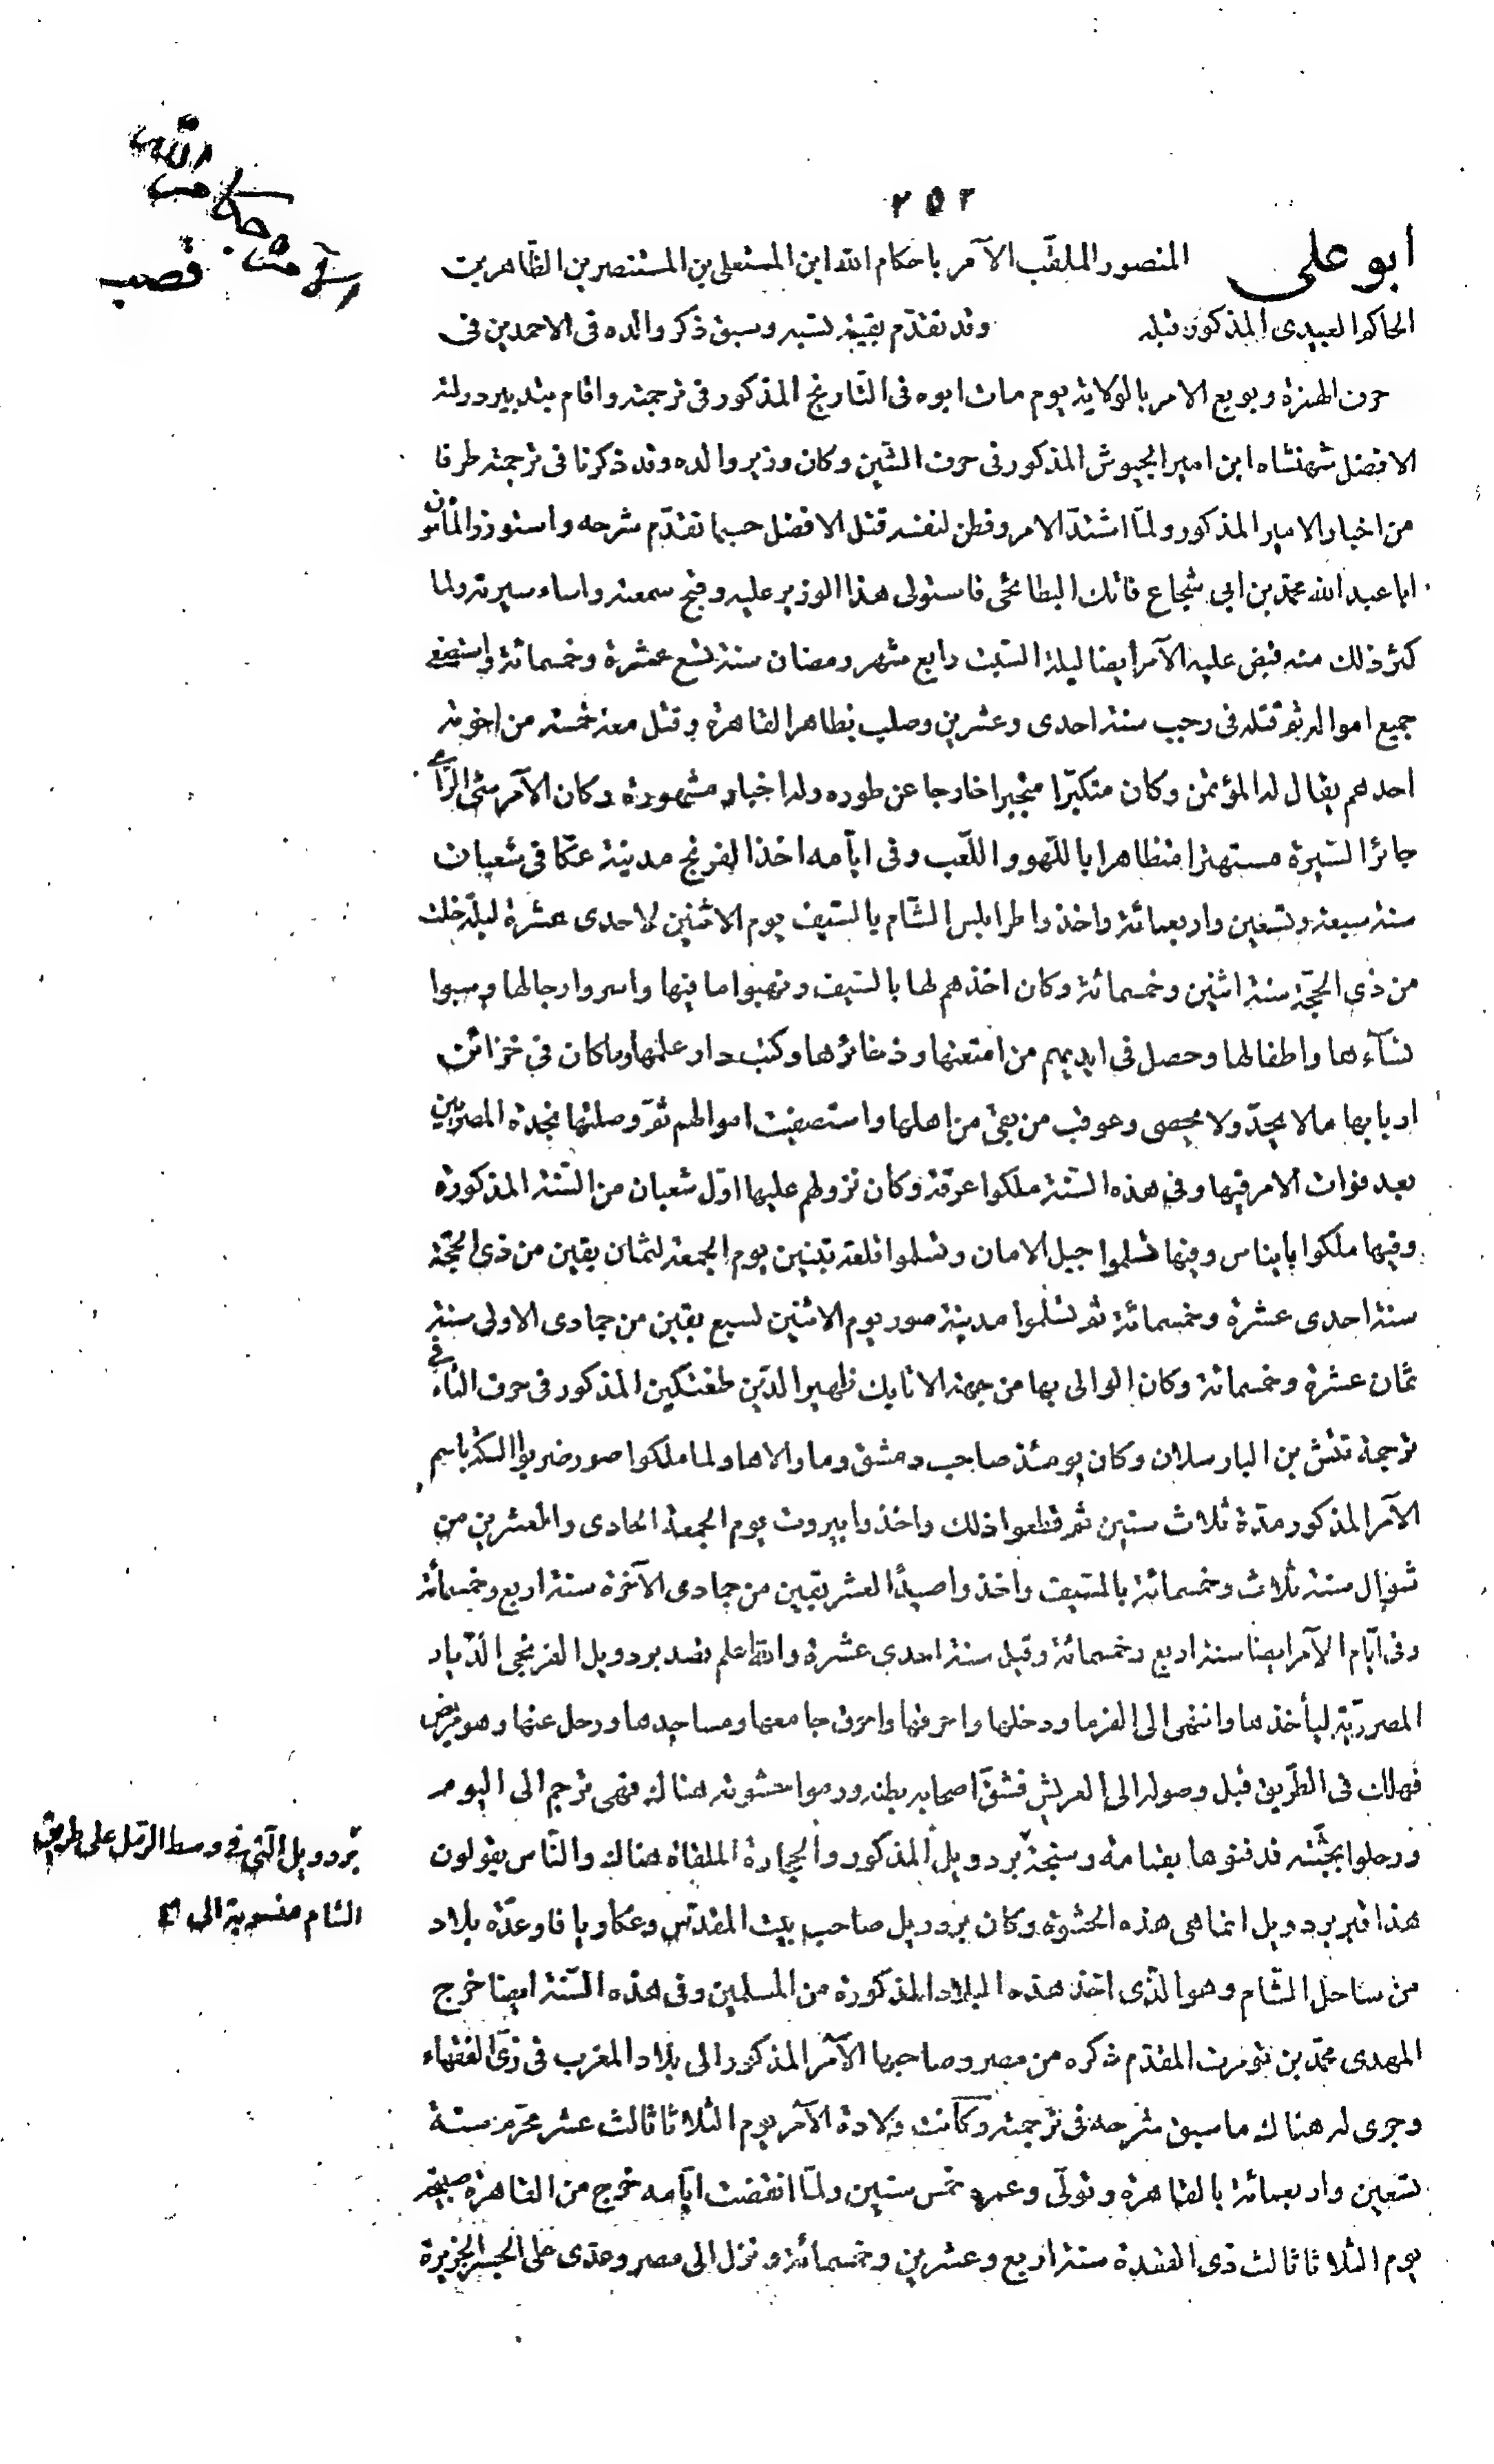 ٢٥٢
الآمر باحكام الله
قصب
ابو على المنصور الملقّب الآمر باحكام الله ابن المستعلى بن المستنصر بن الظّاهر بن
الحاكم العبيدى المذكور قبله وقد تقدّم بقيّة نسبه وسبق ذكر والده فى الاحمدين فى
حرف الهمزة وبويع الامر بالولاية يوم مات ابوه فى التّاريخ المذكور فى ترجمته واقام بتدبير دولته
الافضل شهنشاه ابن امير الجيوش المذكور فى حرف الشّين وكان وزير والده وقد ذكرنا فى ترجمته طرفا
من اخبار الامير المذكور ولمّا اشتدّ الامر وفطن لنفسه قتل الافضل حسبما تقدّم شرحه واستوزر المأمون
ابا عبد الله محمّد بن ابى شجاع فاتك البطائحى فاستولى هذا الوزير عليه وقبح سمعته واساء سيرته ولما
كثر ذلك منه قبض عليه الآمر ايضا ليلة السّبت رابع شهر رمضان سنة تسع عشرة وخمسمائة واستصفى
جميع امواله ثم قتله فى رجب سنة احدى وعشرين وصلب بظاهر القاهرة وقتل معه خمسة من اخوته
احدهم يقال له المؤتمن وكان متكبّرا متجبرا خارجا عن طوره وله اخبار مشهورة وكان الآمر سئ الرّأى
جائر السّيرة مستهترا متظاهرا باللّهو واللّعب وفى ايّامه اخذ الفرنج مدينة عكّا فى شعبان
سنة سبعة وتسعين واربعمائة واخذوا طرابلس الشّام بالسّيف يوم الاثنين لاحدى عشرة ليلة خلت
من ذى الحجّة سنة اثنين وخمسمائة وكان اخذهم لها بالسّيف ونهبوا ما فيها واسروا رجالها وسبوا
نسآءها واطفالها وحصل فى ايديهم من امتعتها وذخائرها وكتب دار علمها وما كان فى خزائن
اربابها مالا يحدّ ولا يحصى وعوقب من بقى من اهلها واستصفيت اموالهم ثمّ وصلتها نجدة المصريين
بعد فوات الامر فيها وفى هذه السّنة ملكوا عرقة وكان نزولهم عليها اوّل شعبان من السّنة المذكورة
وفيها ملكوا بانياس وفيها تسلموا جبيل الامان وتسلموا قلعة تبنين يوم الجمعة لثمان بقين من ذى الحجّة
سنة احدى عشرة وخمسمائة ثم تسلّموا مدينة صور يوم الاثنين لسبع بقين من جمادى الاولى سنة
ثمان عشرة وخمسمائة وكان الوالى بها من جهة الاتابك ظهير الدّين طغتكين المذكور فى حرف التّاء فى
ترجمة تتش بن البارسلان وكان يومئذ صاحب دمشق وما والاها ولما ملكوا صور ضربوا السّكّة باسم
الآمر المذكور مدّة ثلاث سنين ثم قطعوا ذلك واخذوا بيروت يوم الجمعة الحادى والعشرين من
شوال سنة ثلاث وخمسمائة بالسّيف واخذوا صيدا لعشر بقين من جمادى الآخرة سنة اربع وخمسمائة
وفى ايّام الآمر ايضا سنة اربع وخمسمائة وقيل سنة احدى عشرة والله اعلم قصد بردويل الفرنجى الدّيار
المصريّة ليأخذها وانتهى الى الفرما ودخلها واحرقها واحرق جامعها ومساجدها ورحل عنها وهو مريض
فهلك فى الطّريق قبل وصوله الى العريش فشقّ اصحابه بطنه ورموا حشوته هناك فهى ترجم الى اليوم
ورحلوا بجثّته فدفنوها بقمامة وسبخة بردويل المذكور والحجارة الملقاة هناك والنّاس يقولون
بردويل الّتى فى وسط الرّمل على طريق
الشام منسوبة الى
هذا قبر بردويل انما هى هذه الحشوة وكان بردويل صاحب بيت المقدّس وعكا ويافا وعدّة بلاد
من ساحل الشّام وهو الّذى اخذ هذه البلاد المذكورة من المسلمين وفى هذه السّنة ايضا خرج
المهدى محمّد بن تومرت المقدّم ذكره من مصر وصاحبها الآمر المذكور الى بلاد المغرب فى زىّ الفقهاء
وجرى له هناك ما سبق شرحه فى ترجمته وكانت ولادة الآمر يوم الثلاثا ثالث عشر محرّم سنة
تسعين واربعمائة بالقاهرة وتولّى وعمره خمس سنين ولمّا انقضت ايّامه خرج من القاهرة صبيحة
يوم الثلاثا ثالث ذى القعدة سنة اربع وعشرين وخمسمائة ونزل الى مصر وعدّى على الجسر الجزيرة